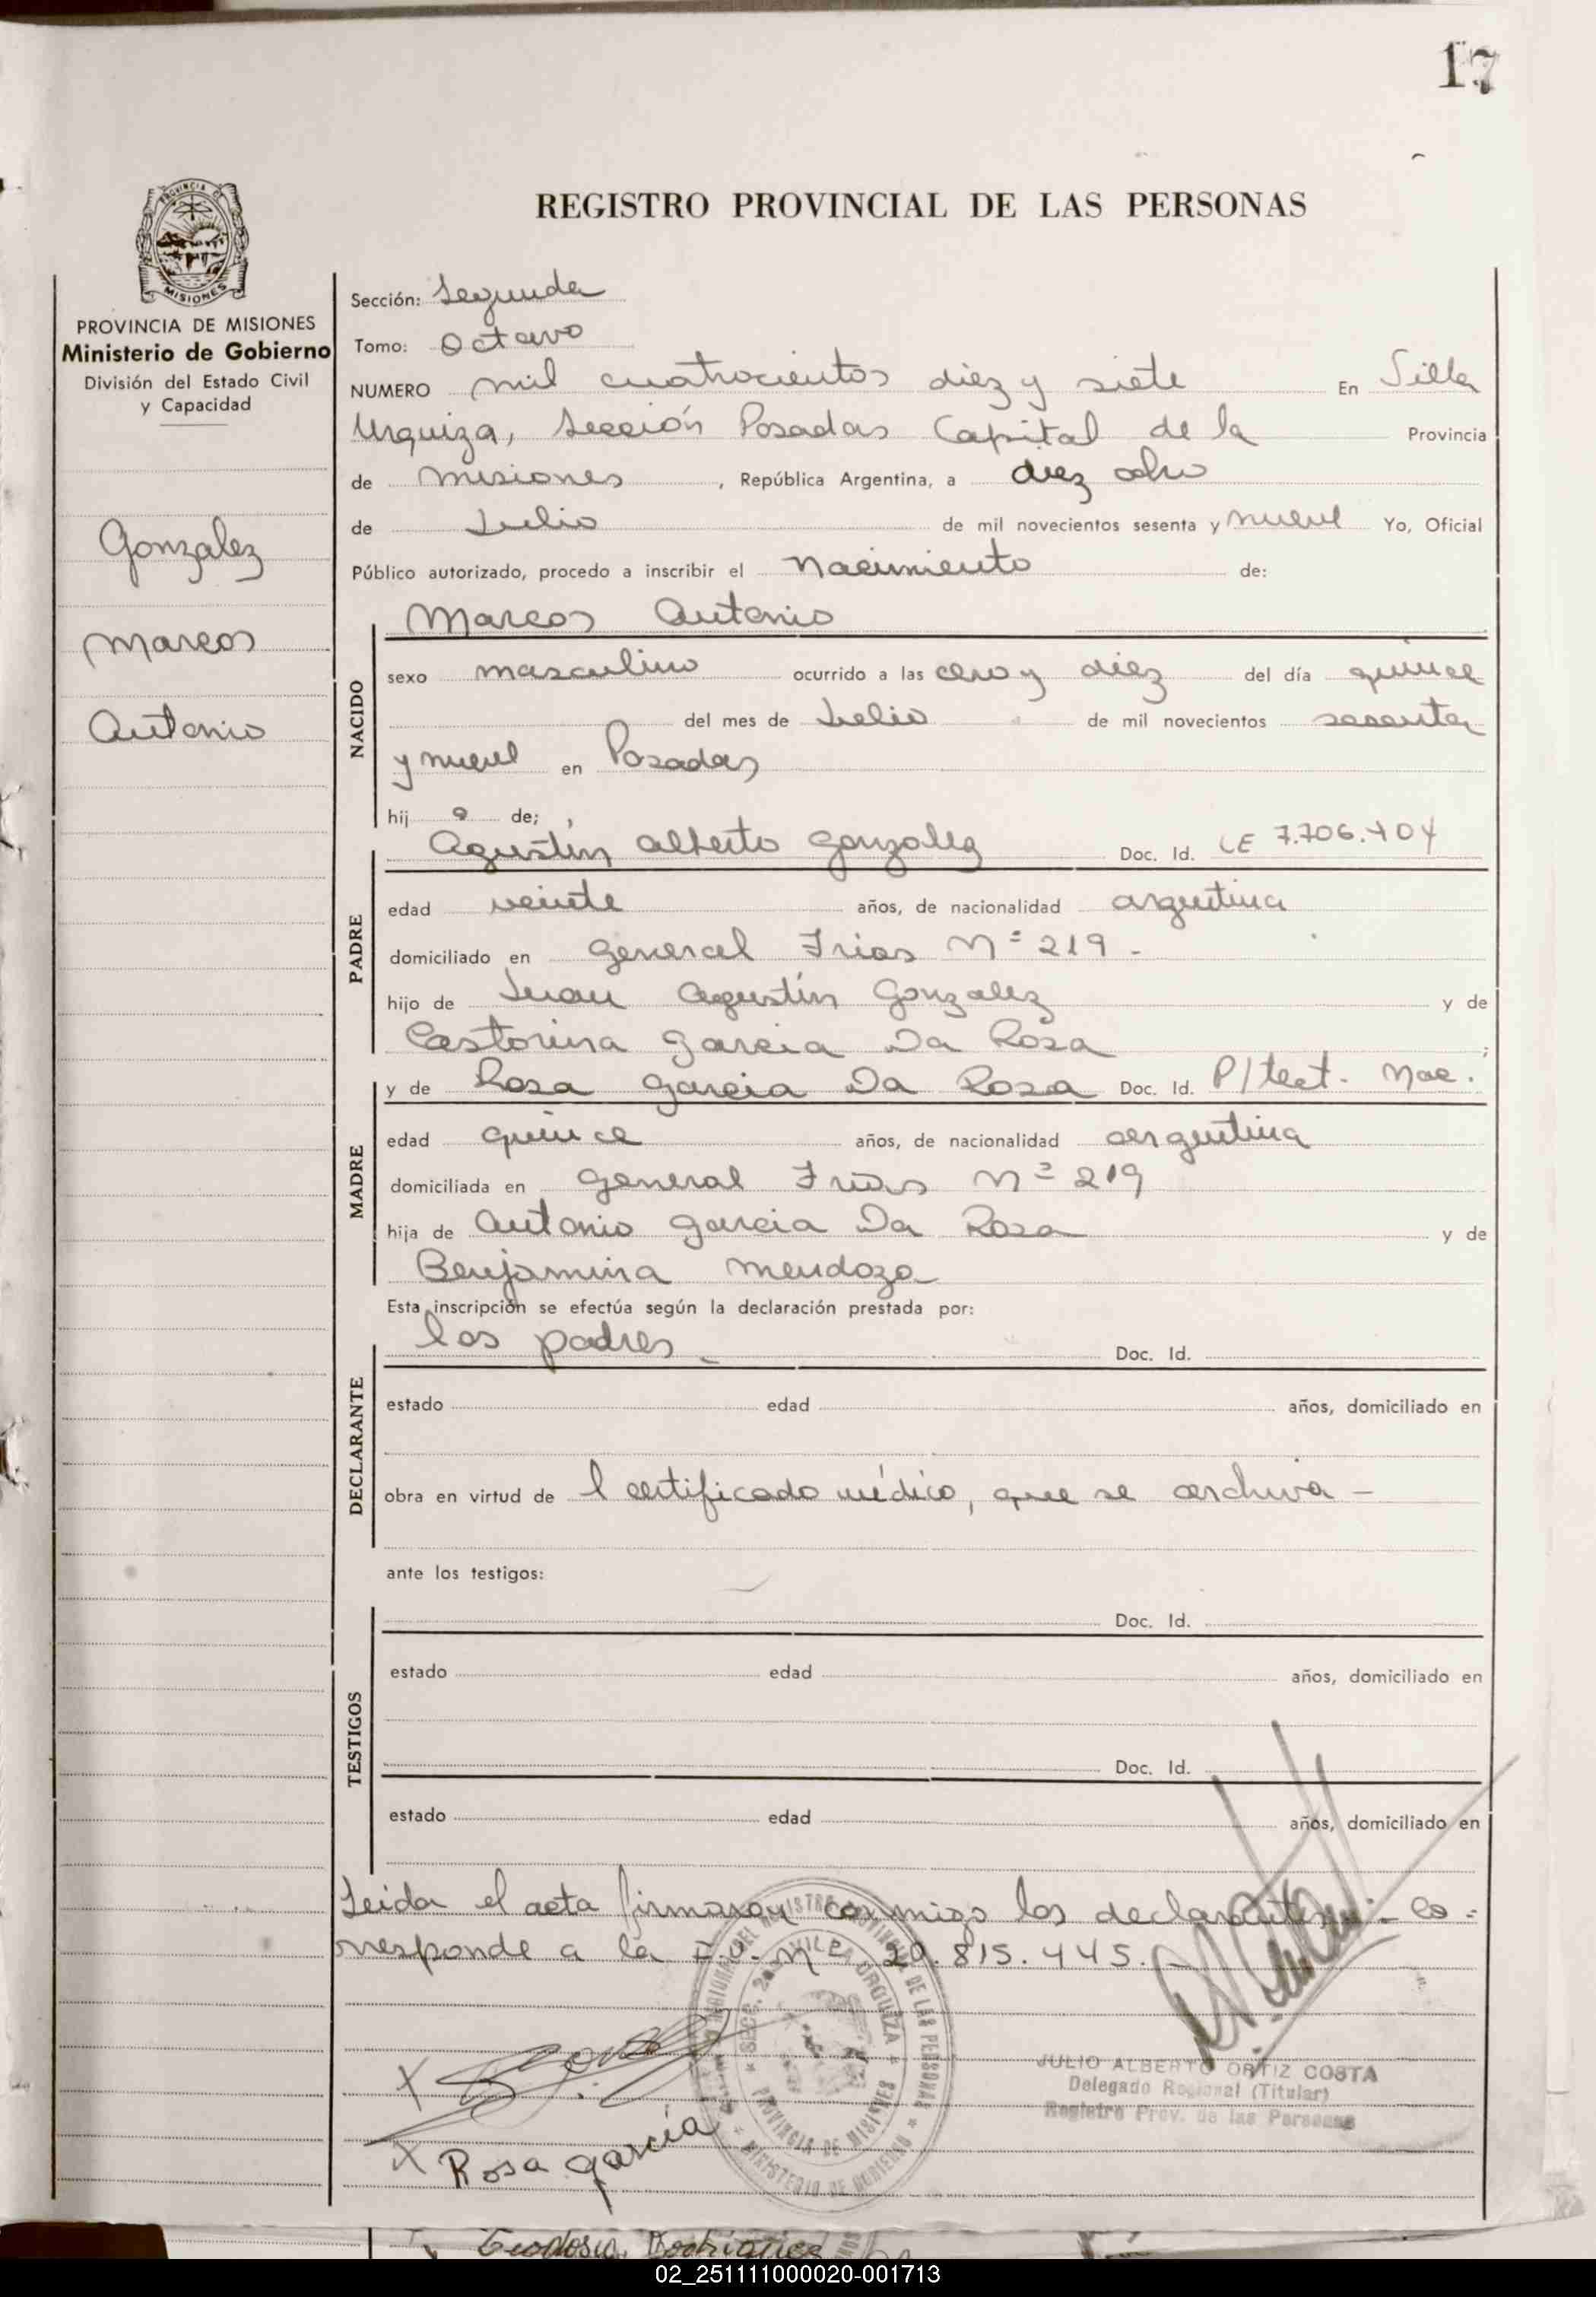 17
REGISTRO PROVINCIAL DE LAS PERSONAS
PROVINCIA DE MISIONES
PROVINCIA DE MISIONES
Ministerio de Gobierno
División del Estado Civil
y Capacidad
Gonzalez
Marcos
Antonio
Sección: Segunda
Tomo: Octavo
NUMERO mil cuatrocientos diez y siete En Villa
Urquiza, Sección Posadas Capital de la Provincia
de Misiones, República Argentina, a diez ocho
de Julio de mil novecientos sesenta y nueve Yo, Oficial
Público autorizado, procedo a inscribir el nacimiento de:
Marcos Antonio
NACIDO
sexo masculino ocurrido a las cero y diez del día quince
del mes de Julio de mil novecientos sesenta
y nueve en Posadas
hij o de;
Agustín Alberto Gonzalez Doc. Id. LE 7.706.404
PADRE
edad veinte años, de nacionalidad argentina
domiciliado en General Frias Nº 219 -
hijo de Juan Agustín Gonzalez y de
Castorina Garcia Da Rosa ;
y de Rosa Garcia Da Rosa Doc. Id. P/tect. Nac.
MADRE
edad quince años, de nacionalidad argentina
domiciliada en General Frias Nº 219
hija de Antonio Garcia Da Rosa y de
Benjamina Mendoza
Esta inscripción se efectúa según la declaración prestada por:
los padres. Doc. Id.
DECLARANTE
estado edad años, domiciliado en
obra en virtud de l certificado médico, que se archiva -
ante los testigos:
Doc. Id.
TESTIGOS
estado edad años, domiciliado en
Doc. Id.
estado edad años, domiciliado en
Leida el acta firmaron conmigo los declarantes: - Co=
rresponde a la F.U. Nº 20.815.445.-
SECC. 2a. VILLA URQUIZA
PROVINCIA DE MISIONES
MINISTERIO DE GOBIERNO
X
X Rosa garcía
JULIO ALBERTO ORTIZ COSTA
Delegado Regional (Titular)
Registro Prov. de las Personas
Teodosio Rodriguez
02_251111000020-001713